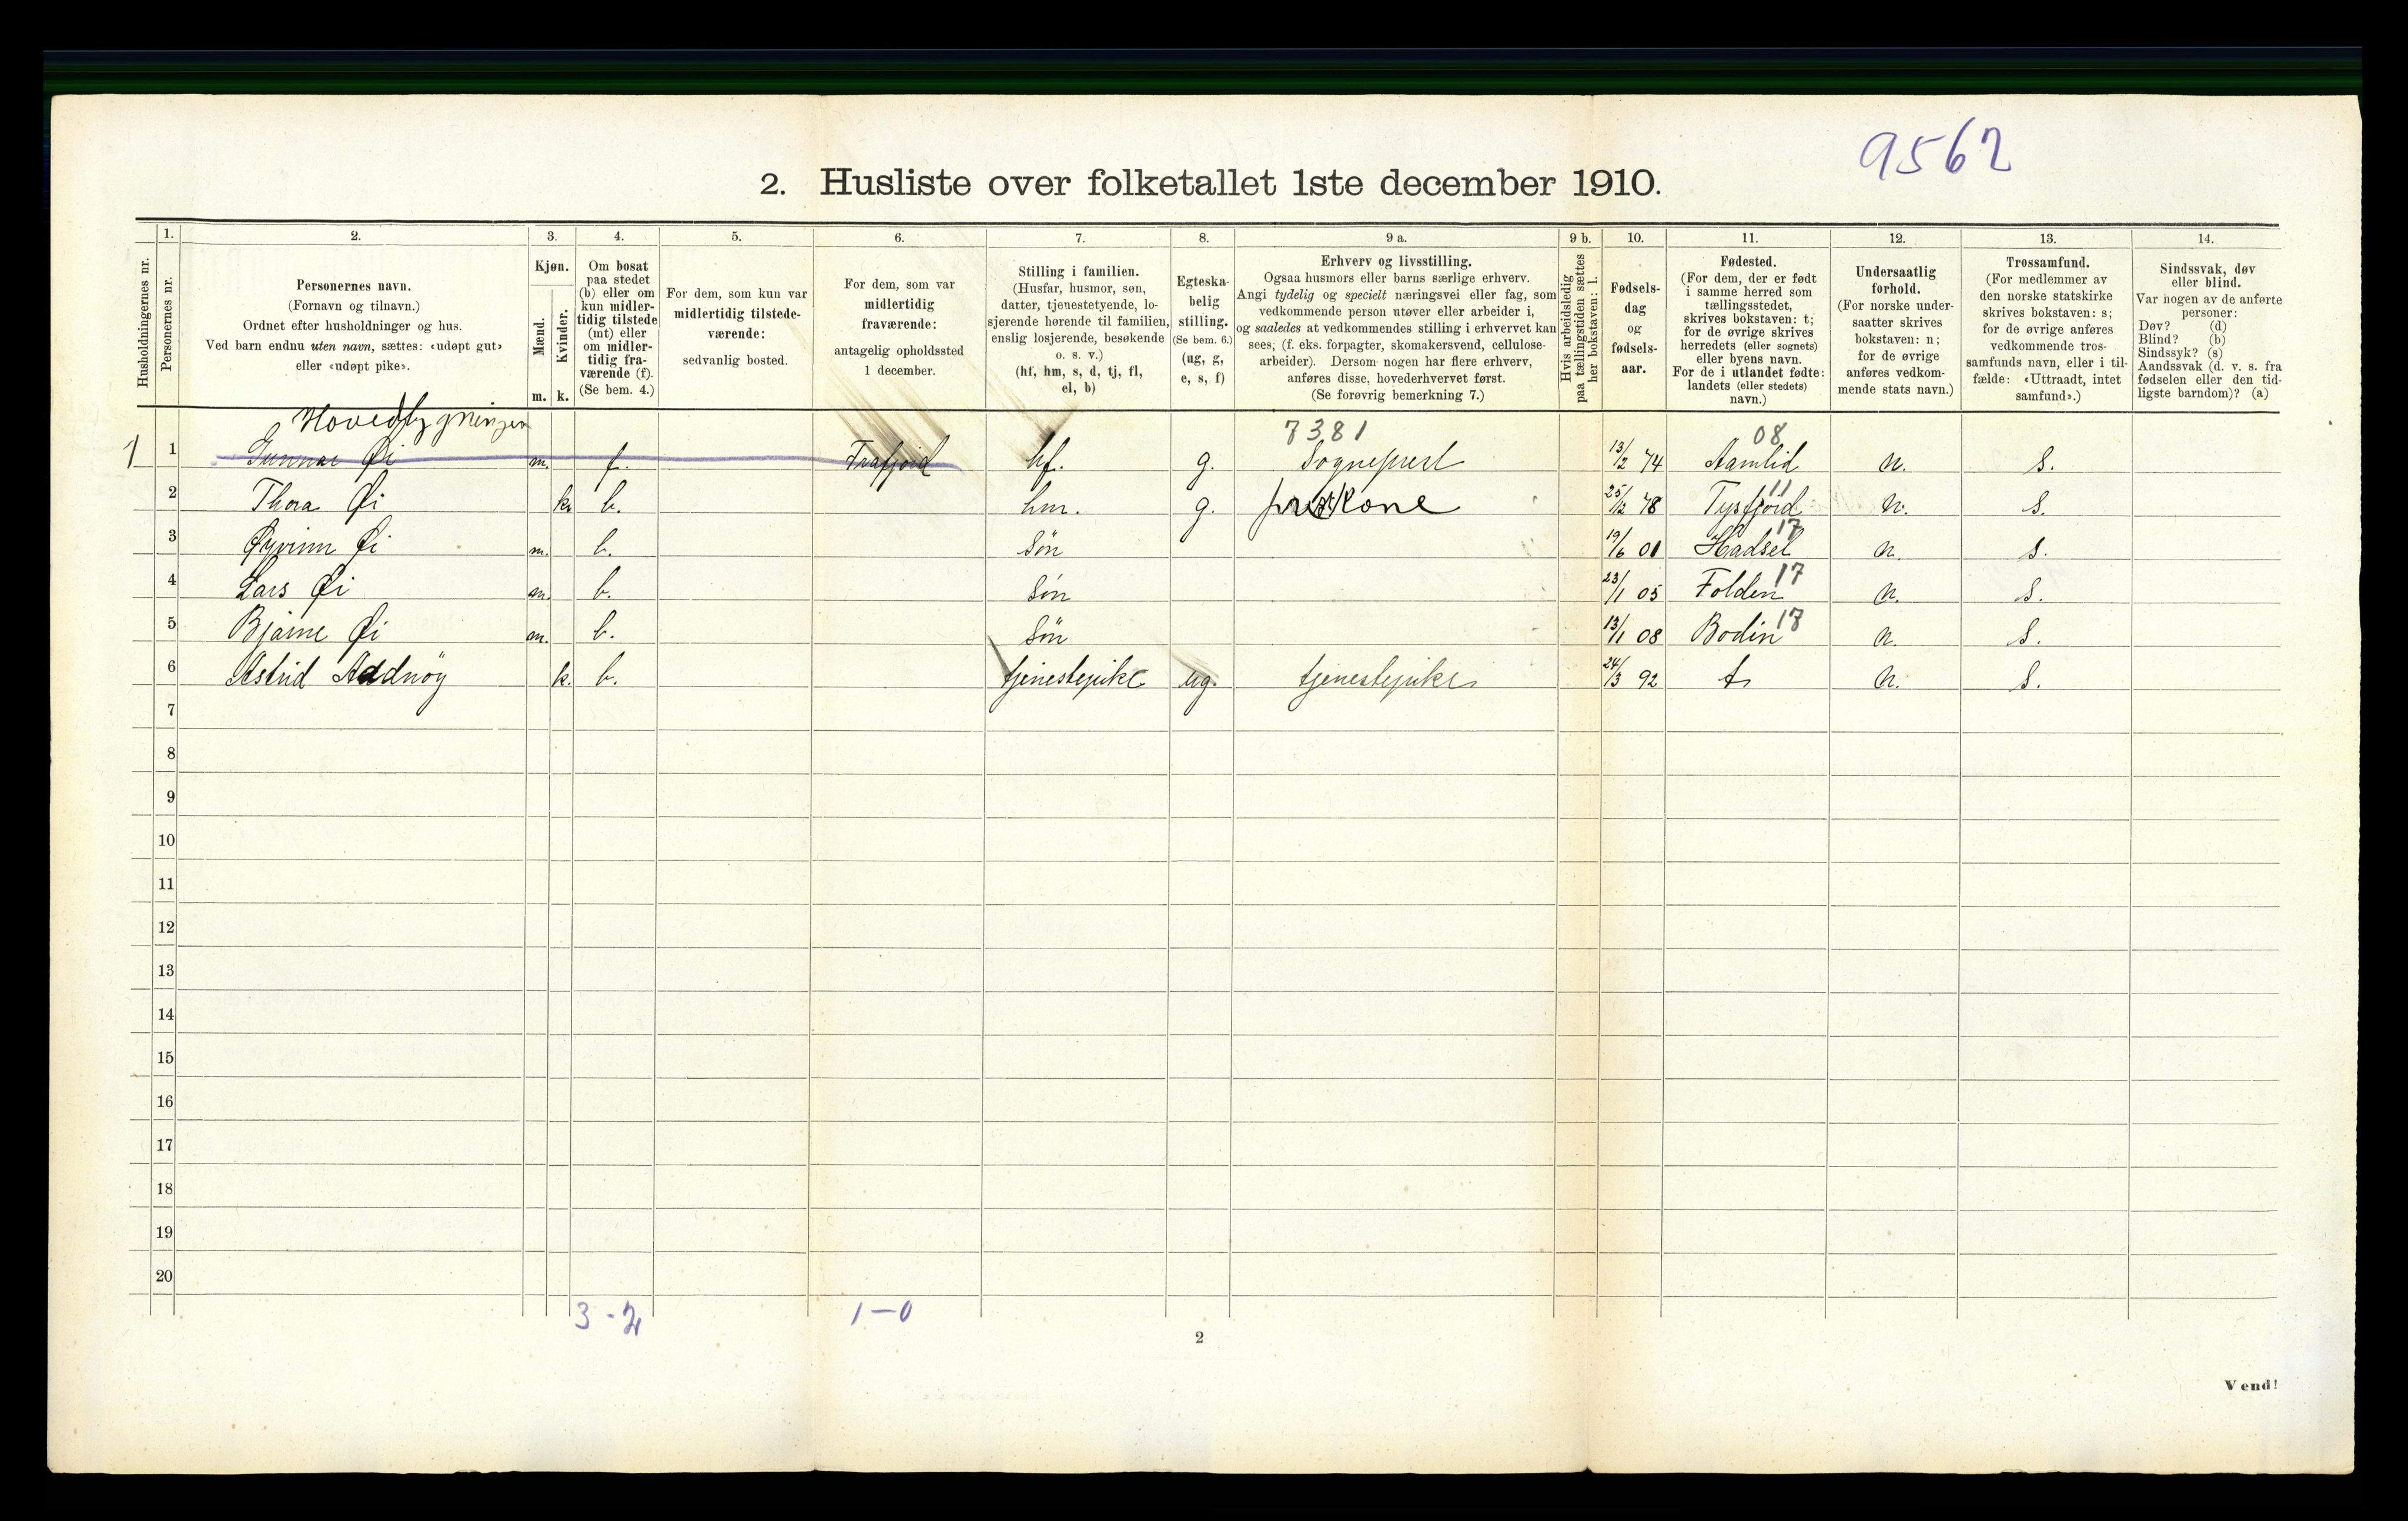 9562
2. Husliste over folketallet 1ste december 1910.
Husholdningernes nr.
1.
Personernes nr.
2.
Personernes navn.
(Fornavn og tilnavn.)
Ordnet efter husholdninger og hus.
Ved barn endnu uten navn, sættes: «udøpt gut»
eller «udøpt pike».
3.
Kjøn.
Mænd.
Kvinder.
m. k.
4.
Om bosat
paa stedet
(b) eller om
kun midler-
tidig tilstede
(mt) eller
om midler-
tidig fra-
værende (f).
(Se bem. 4.)
5.
For dem, som kun var
midlertidig tilstede-
værende:
sedvanlig bosted.
6.
For dem, som var
midlertidig
fraværende:
antagelig opholdssted
1 december.
7.
Stilling i familien.
(Husfar, husmor, søn,
datter, tjenestetyende, lo-
sjerende hørende til familien,
enslig losjerende, besøkende
o. s. v.)
(hf, hm, s, d, tj, fl,
el, b)
8.
Egteska-
belig
stilling.
(Se bem. 6.)
(ug, g,
e, s, f)
9 a.
Erhverv og livsstilling.
Ogsaa husmors eller barns særlige erhverv.
Angi tydelig og specielt næringsvei eller fag, som
vedkommende person utøver eller arbeider i,
og saaledes at vedkommendes stilling i erhvervet kan
sees, (f. eks. forpagter, skomakersvend, cellulose-
arbeider). Dersom nogen har flere erhverv,
anføres disse, hovederhvervet først.
(Se forøvrig bemerkning 7.)
9 b.
Hvis arbeidsledig
paa tællingstiden sættes
her bokstaven: l.
10.
Fødsels-
dag
og
fødsels-
aar.
11.
Fødested.
(For dem, der er født
i samme herred som
tællingsstedet,
skrives bokstaven: t;
for de øvrige skrives
herredets (eller sognets)
eller byens navn.
For de i utlandet fødte:
landets (eller stedets)
navn.)
12.
Undersaatlig
forhold.
(For norske under-
saatter skrives
bokstaven: n;
for de øvrige
anføres vedkom-
mende stats navn.)
13.
Trossamfund.
(For medlemmer av
den norske statskirke
skrives bokstaven: s;
for de øvrige anføres
vedkommende tros-
samfunds navn, eller i til-
fælde: «Uttraadt, intet
samfund».)
14.
Sindssvak, døv
eller blind.
Var nogen av de anførte
personer:
Døv? (d)
Blind? (b)
Sindssyk? (s)
Aandssvak (d. v. s. fra
fødselen eller den tid-
ligste barndom)? (a)
Hovedbygningen
7381 08
1 1 Gunnar Øi m. f. Frafjord hf. g. Sogneprest 13/2 74 Aamlid n. s.
11
2 Thora Øi k. b. hm. g. prestekone 25/12 78 Tysfjord n. s.
17
3 Øyvinn Øi m. b. Søn 19/6 01 Hadsel n. s.
4 Lars Øi m. b. Søn 23/1 05 Folden 17 n. s.
5 Bjarne Øi m. b. Søn 13/1 08 Bodin 17 n. s.
6 Astrid Aadnöy k. b. tjenestepike ug. tjenestepike 24/3 92 t n. s.
7
8
9
10
11
12
13
14
15
16
17
18
19
20
3 - 2 1 - 0
2
Vend!